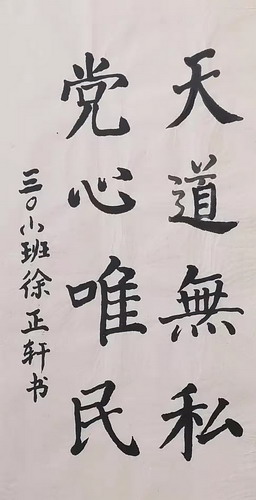 天道無私
党心唯民
三〇小班徐正轩书